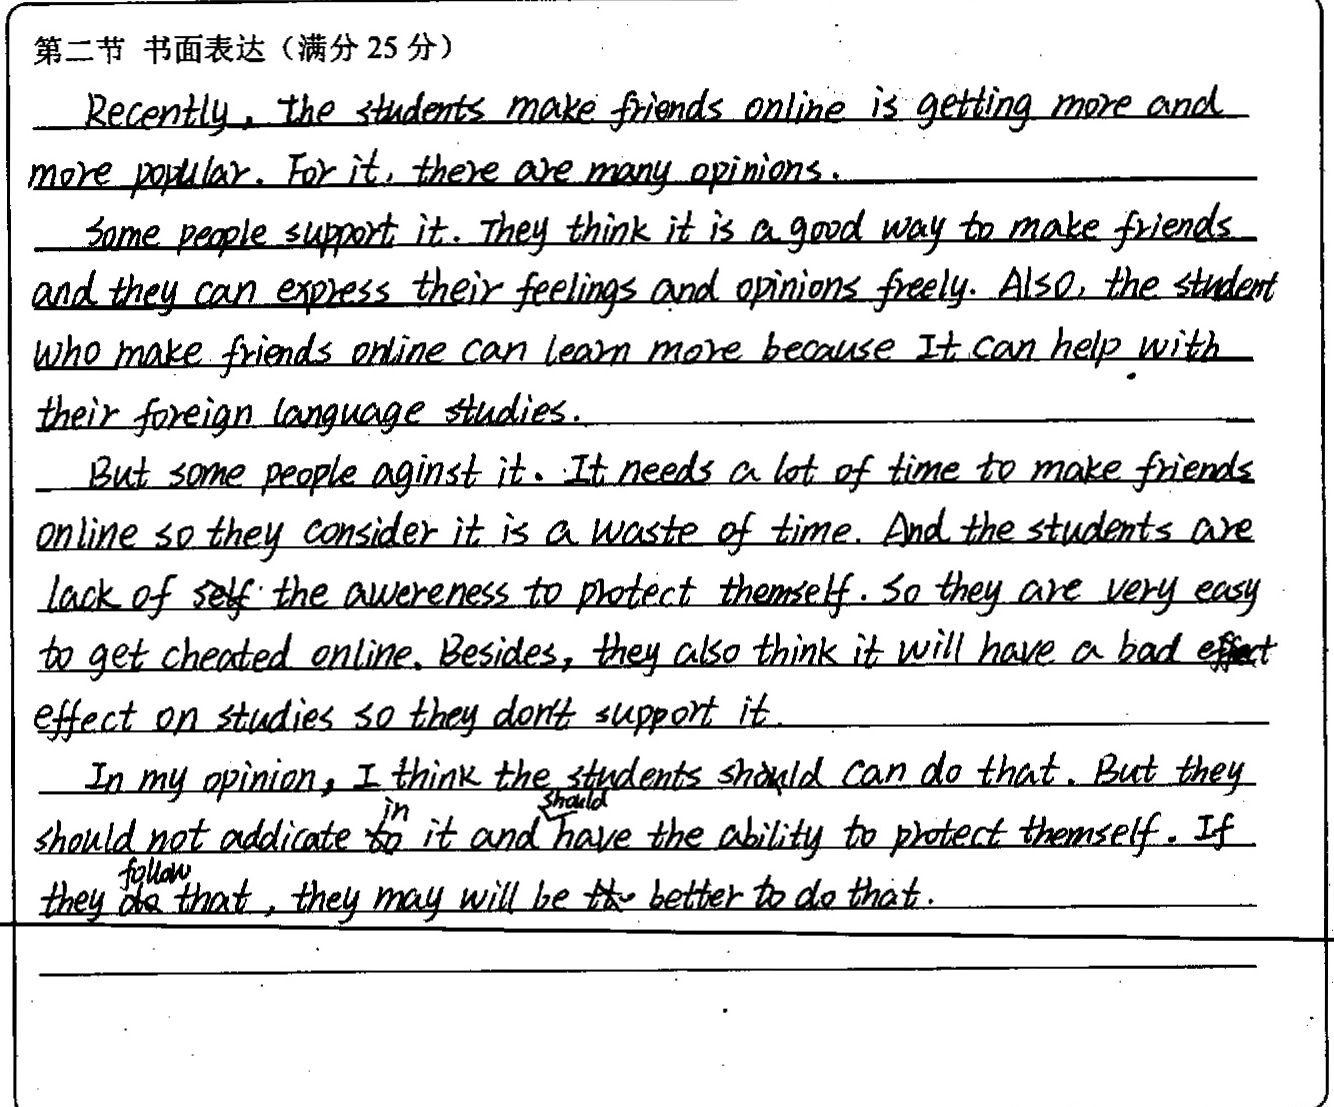 第二节 书面表达（满分 25 分）
Recently, the students make friends online is getting more and
more popular. For it, there are many opinions.
Some people support it. They think it is a good way to make friends
and they can express their feelings and opinions freely. Also, the student
who make friends online can learn more because It can help with
their foreign language studies.
But some people aginst it. It needs a lot of time to make friends
online so they consider it is a waste of time. And the students are
lack of self the awereness to protect themself. So they are very easy
to get cheated online. Besides, they also think it will have a bad effect
effect on studies so they don't support it.
In my opinion, I think the students should can do that. But they
in should
should not addicate to it and have the ability to protect themself. If
follow
they do that, they may will be better to do that.